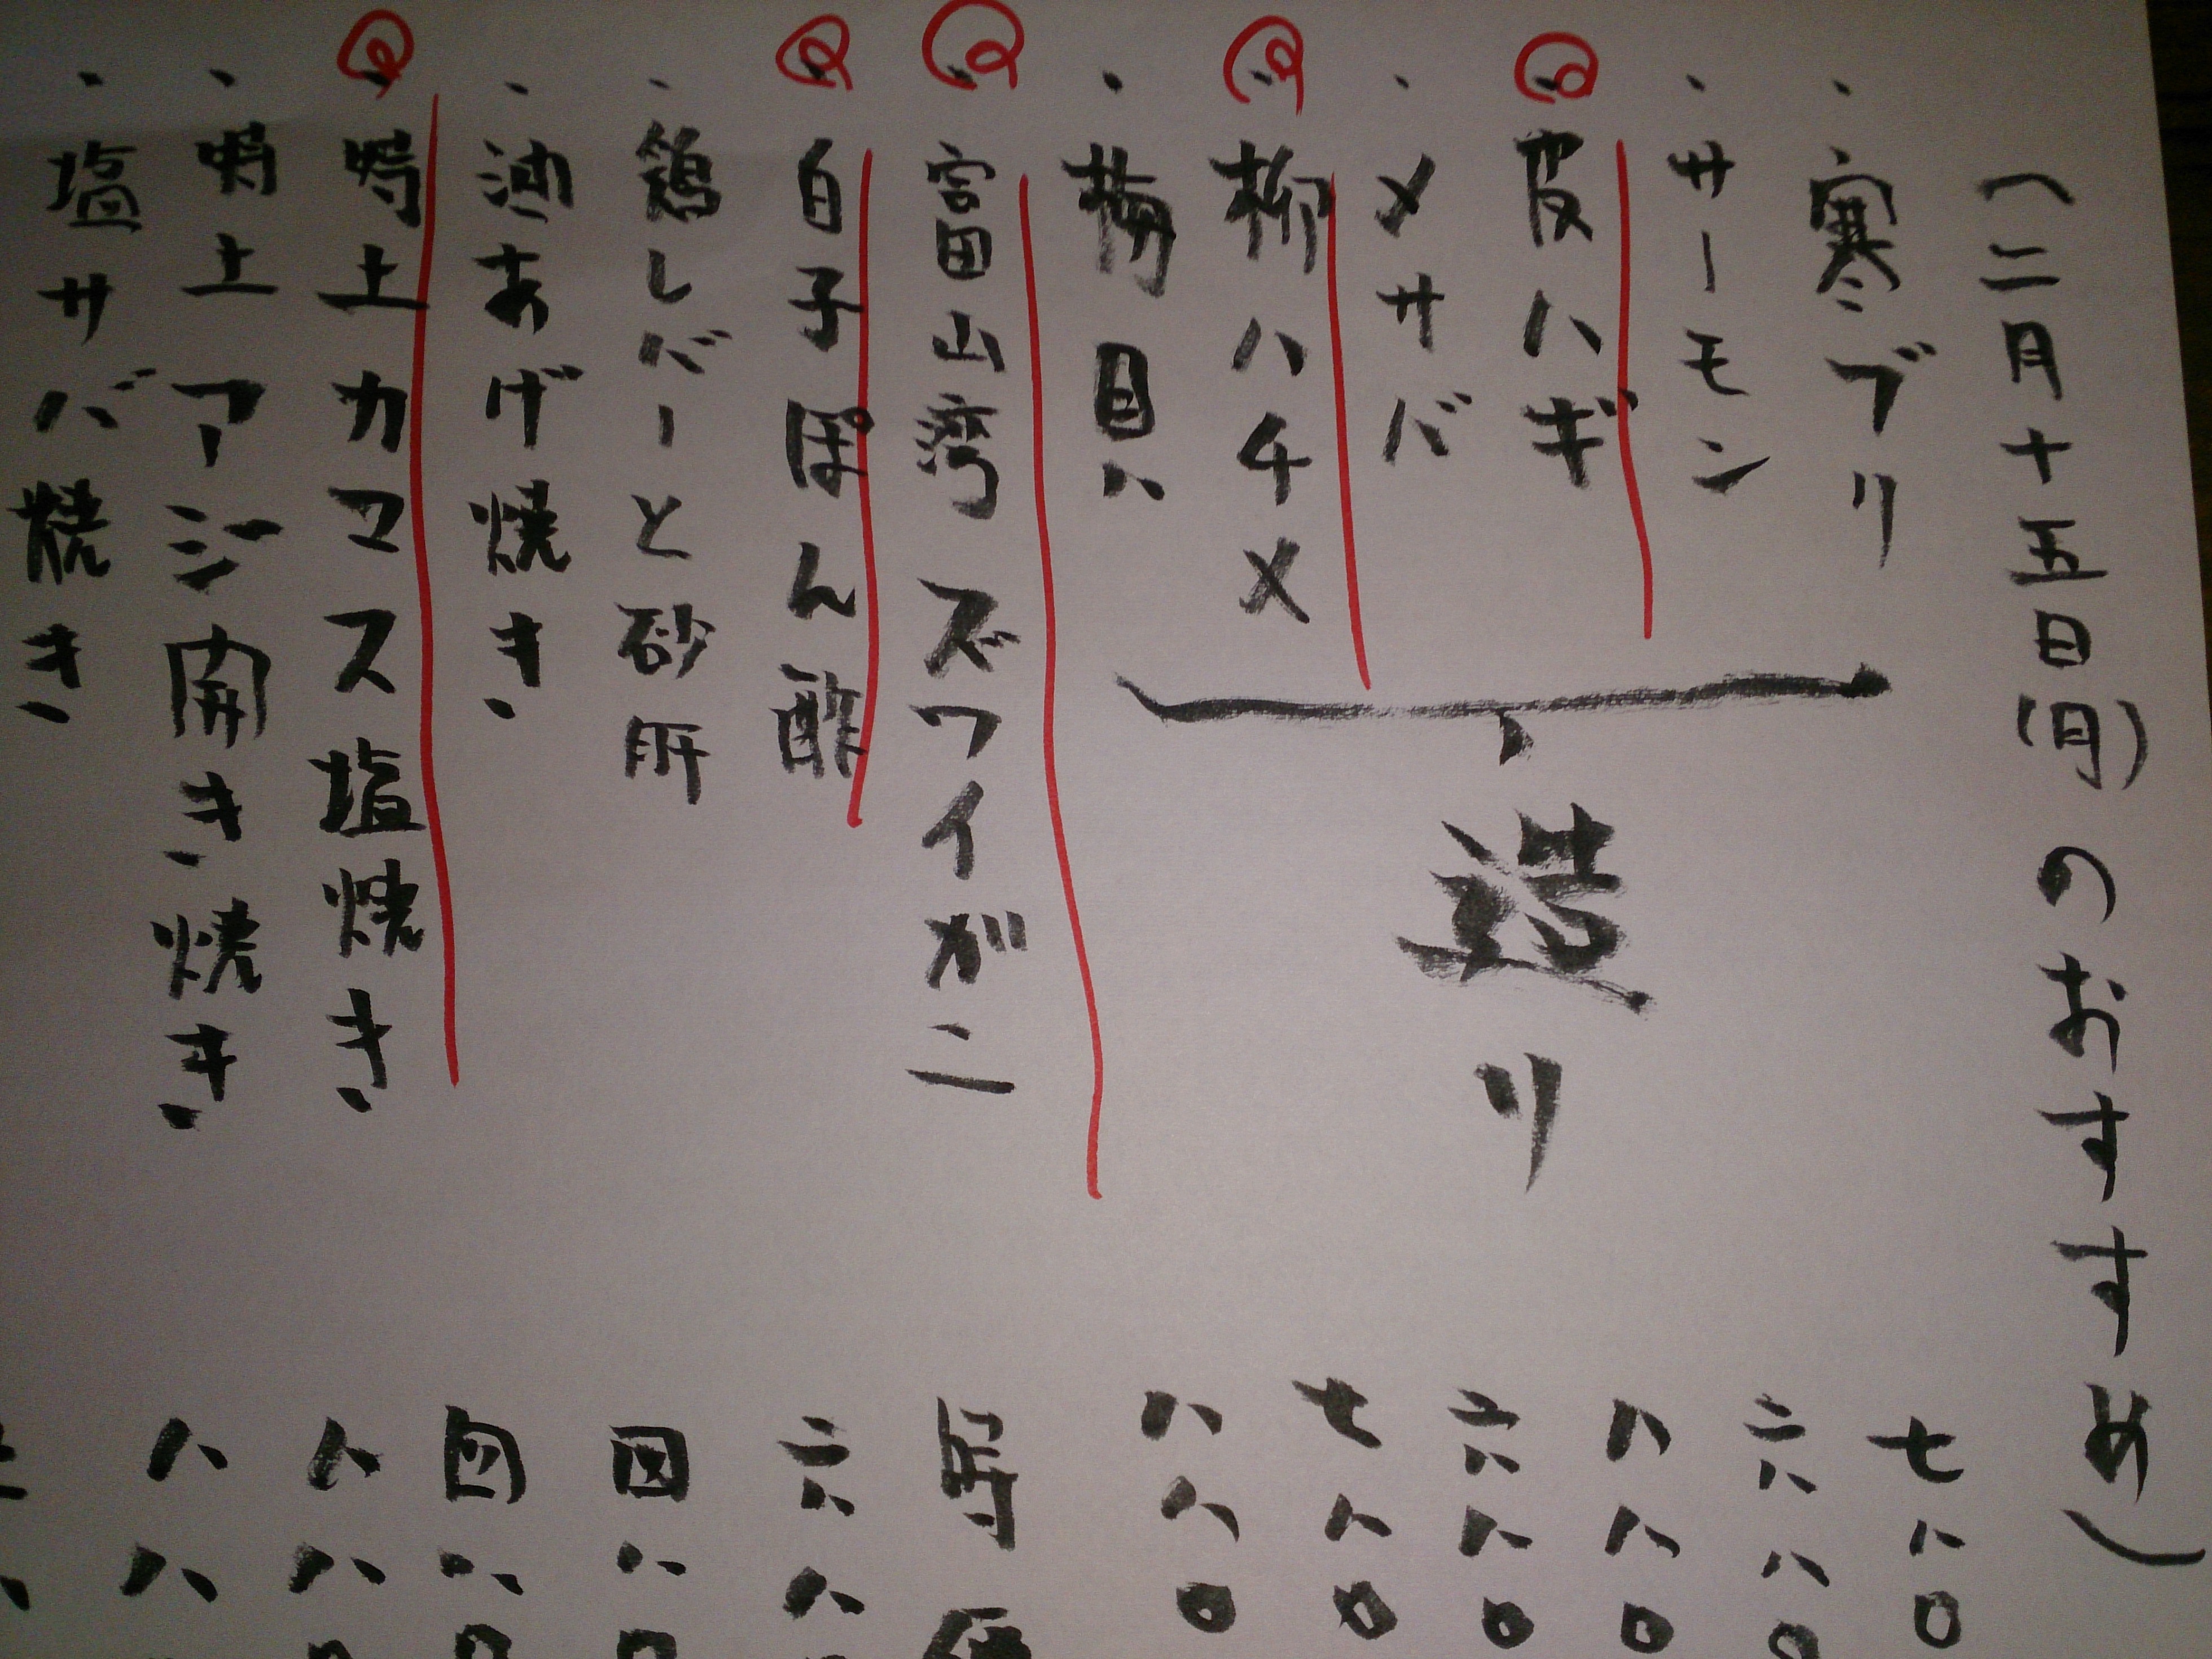 (二月十五日(月)のおすすめ)
・寒ブリ 七八〇
・サーモン 六八〇
・皮ハギ 八八〇
・〆サバ 六八〇
・柳ハチメ 七八〇
・梅貝 八八〇
造り
・富山湾ズワイガニ 時価
・白子ぽん酢 六八〇
・鶏レバーと砂肝 四八〇
・油あげ焼き 四八〇
・特上カマス塩焼き 八八〇
・特上アジ開き焼き 八八
・塩サバ焼き